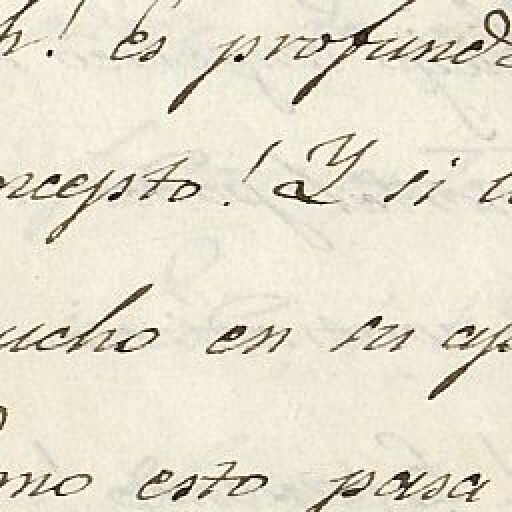 h! És profund
oncepto! Y si
ucho en su ap
mo esto pasa